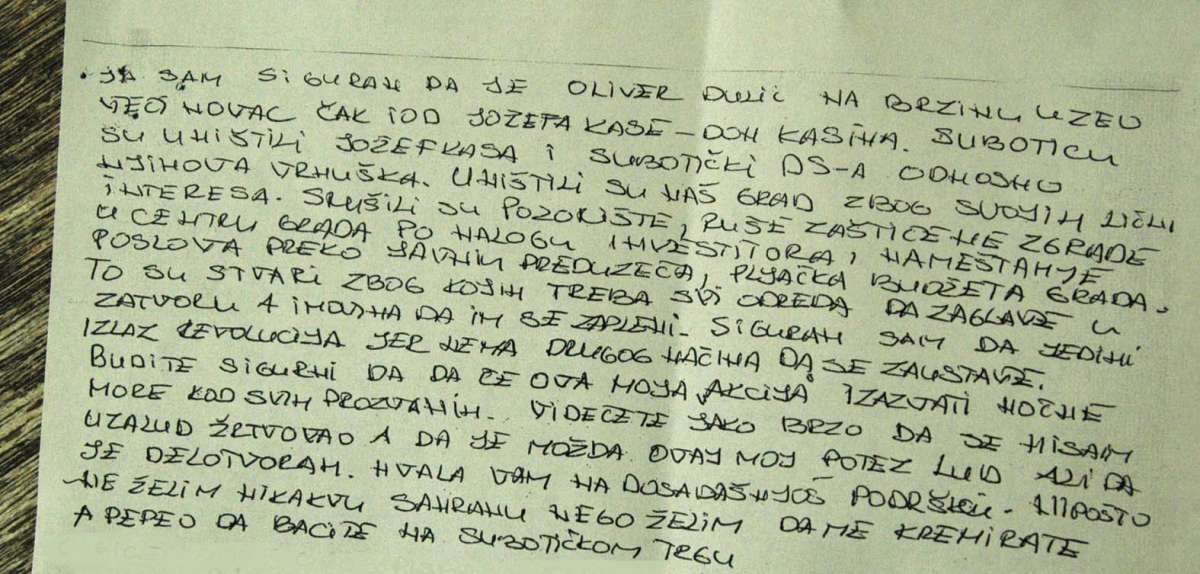 JA SAM SIGURAN DA JE OLIVER DULIĆ NA BRZINU UZEO
VEĆI NOVAC ČAK I OD JOŽEFA KASE – DON KASINA. SUBOTICU
SU UNIŠTILI JOŽEF KASA I SUBOTIČKI DS-A ODNOSNO
NJIHOVA VRHUŠKA. UNIŠTILI SU NAŠ GRAD ZBOG SVOJIH LIČNI
INTERESA. SRUŠILI SU POZORIŠTE, RUŠE ZAŠTIĆENE ZGRADE
U CENTRU GRADA PO NALOGU INVESTITORA, NAMEŠTANJE
POSLOVA PREKO JAVNIH PREDUZEĆA, PLJAČKA BUDŽETA GRADA.
TO SU STVARI ZBOG KOJIH TREBA SVI ODREDA DA ZAGLAVE U
ZATVORU A IMOVINA DA IM SE ZAPLENI. SIGURAN SAM DA JEDINI
IZLAZ REVOLUCIJA JER NEMA DRUGOG NAČINA DA SE ZAUSTAVE.
BUDITE SIGURNI DA DA ĆE OVA MOJA AKCIJA IZAZVATI NOĆNE
MORE KOD SVIH PROZVANIH. VIDEĆETE JAKO BRZO DA SE NISAM
UZALUD ŽRTVOVAO A DA JE MOŽDA OVAJ MOJ POTEZ LUD ALI DA
JE DELOTVORAN. HVALA VAM NA DOSADAŠNJOŠ PODRŠKI. NIPOŠTO
NE ŽELIM NIKAKVU SAHRANU NEGO ŽELIM DA ME KREMIRATE
A PEPEO DA BACITE NA SUBOTIČKOM TRGU